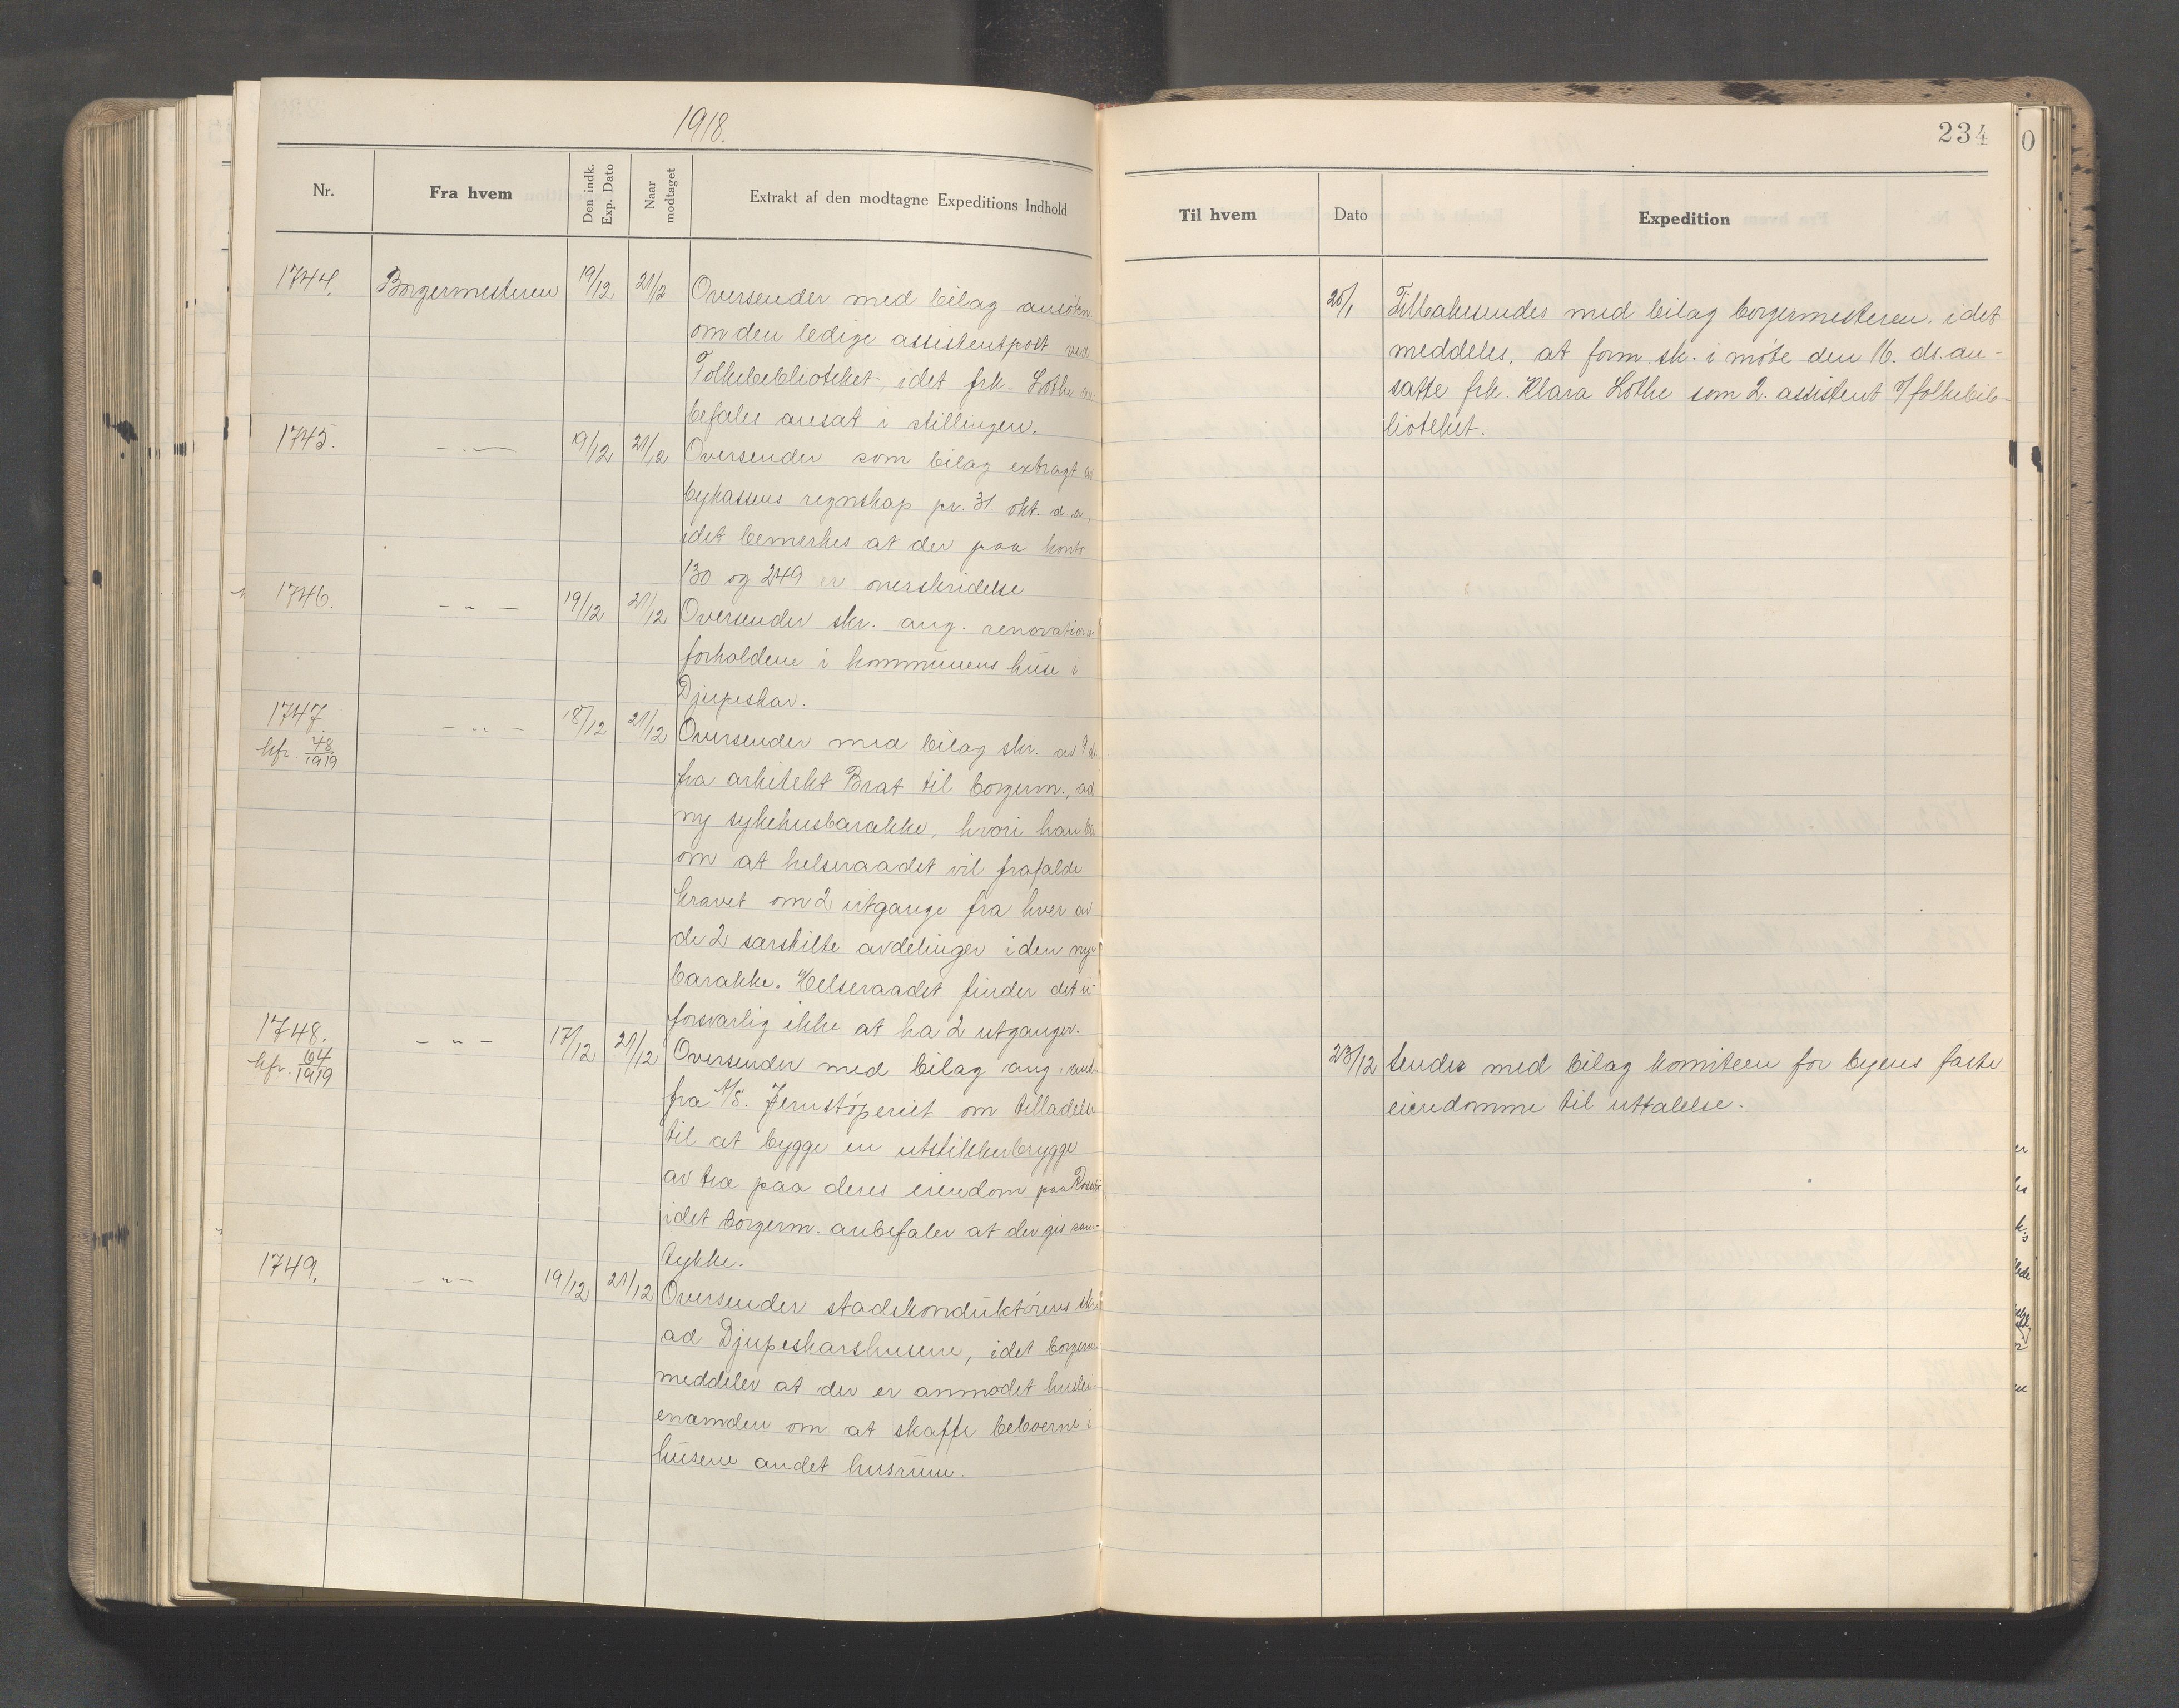 1918.
Nr.
Fra hvem
Den indk. Exp. Dato
Naar modtaget
Extrakt af den modtagne Expeditions Indhold
1744. Borgermesteren 19/12 21/12 Oversender med bilag ansökn.
om den ledige assistentpost ved
Folkebiblioteket, idet frk. Lothe
befales ansat i stillingen.
1745. - " - 19/12 21/12 Oversender som bilag extragt av
bykassens regnskap pr. 31. okt. d.a.
idet bemerkes at der paa konto
130 og 249 er overskridelse
1746. - " - 19/12 21/12 Oversender skr. ang. renovations-
forholdene i kommunens huse i
Djupeskar.
1747. - " - 18/12 21/12 Oversender med bilag skr. av 9
kfr. 48/1919
fra arkitekt Brat til borgerm., ad
ny sykehusbarakke, hvori han ber
om at helseraadet vil frafalde
kravet om 2 utgange fra hver av
de 2 særskilte avdelinger i den nye
barakke. Helseraadet finder det u-
forsvarlig ikke at ha 2 utganger.
1748. - " - 17/12 21/12 Oversender med bilag ang. ans.
kfr. 64/1919
fra A/S. Jernstöperiet om tilladelse
til at bygge en utstikkerbrygge
av træ paa deres eiendom paa
idet borgerm. anbefaler at der gis sam-
tykke.
1749. - " - 19/12 21/12 Oversender stadskonduktörens skr.
ad Djupeskarshusene, idet borgerm.
meddeler at der er anmodet huslei-
enæmden om at skaffe beboerne i
husene andet husrum.
234
Til hvem
Dato
Expedition
20/1 Tilbakesendes med bilag borgermesteren, idet
meddeles, at form.sk. i möte den 16. ds. an-
satte frk. Klara Lothe som 2. assistent v/folkebib-
lioteket.
23/12 Sendes med bilag komiteen for byens faste
eiendomme til uttalelse.